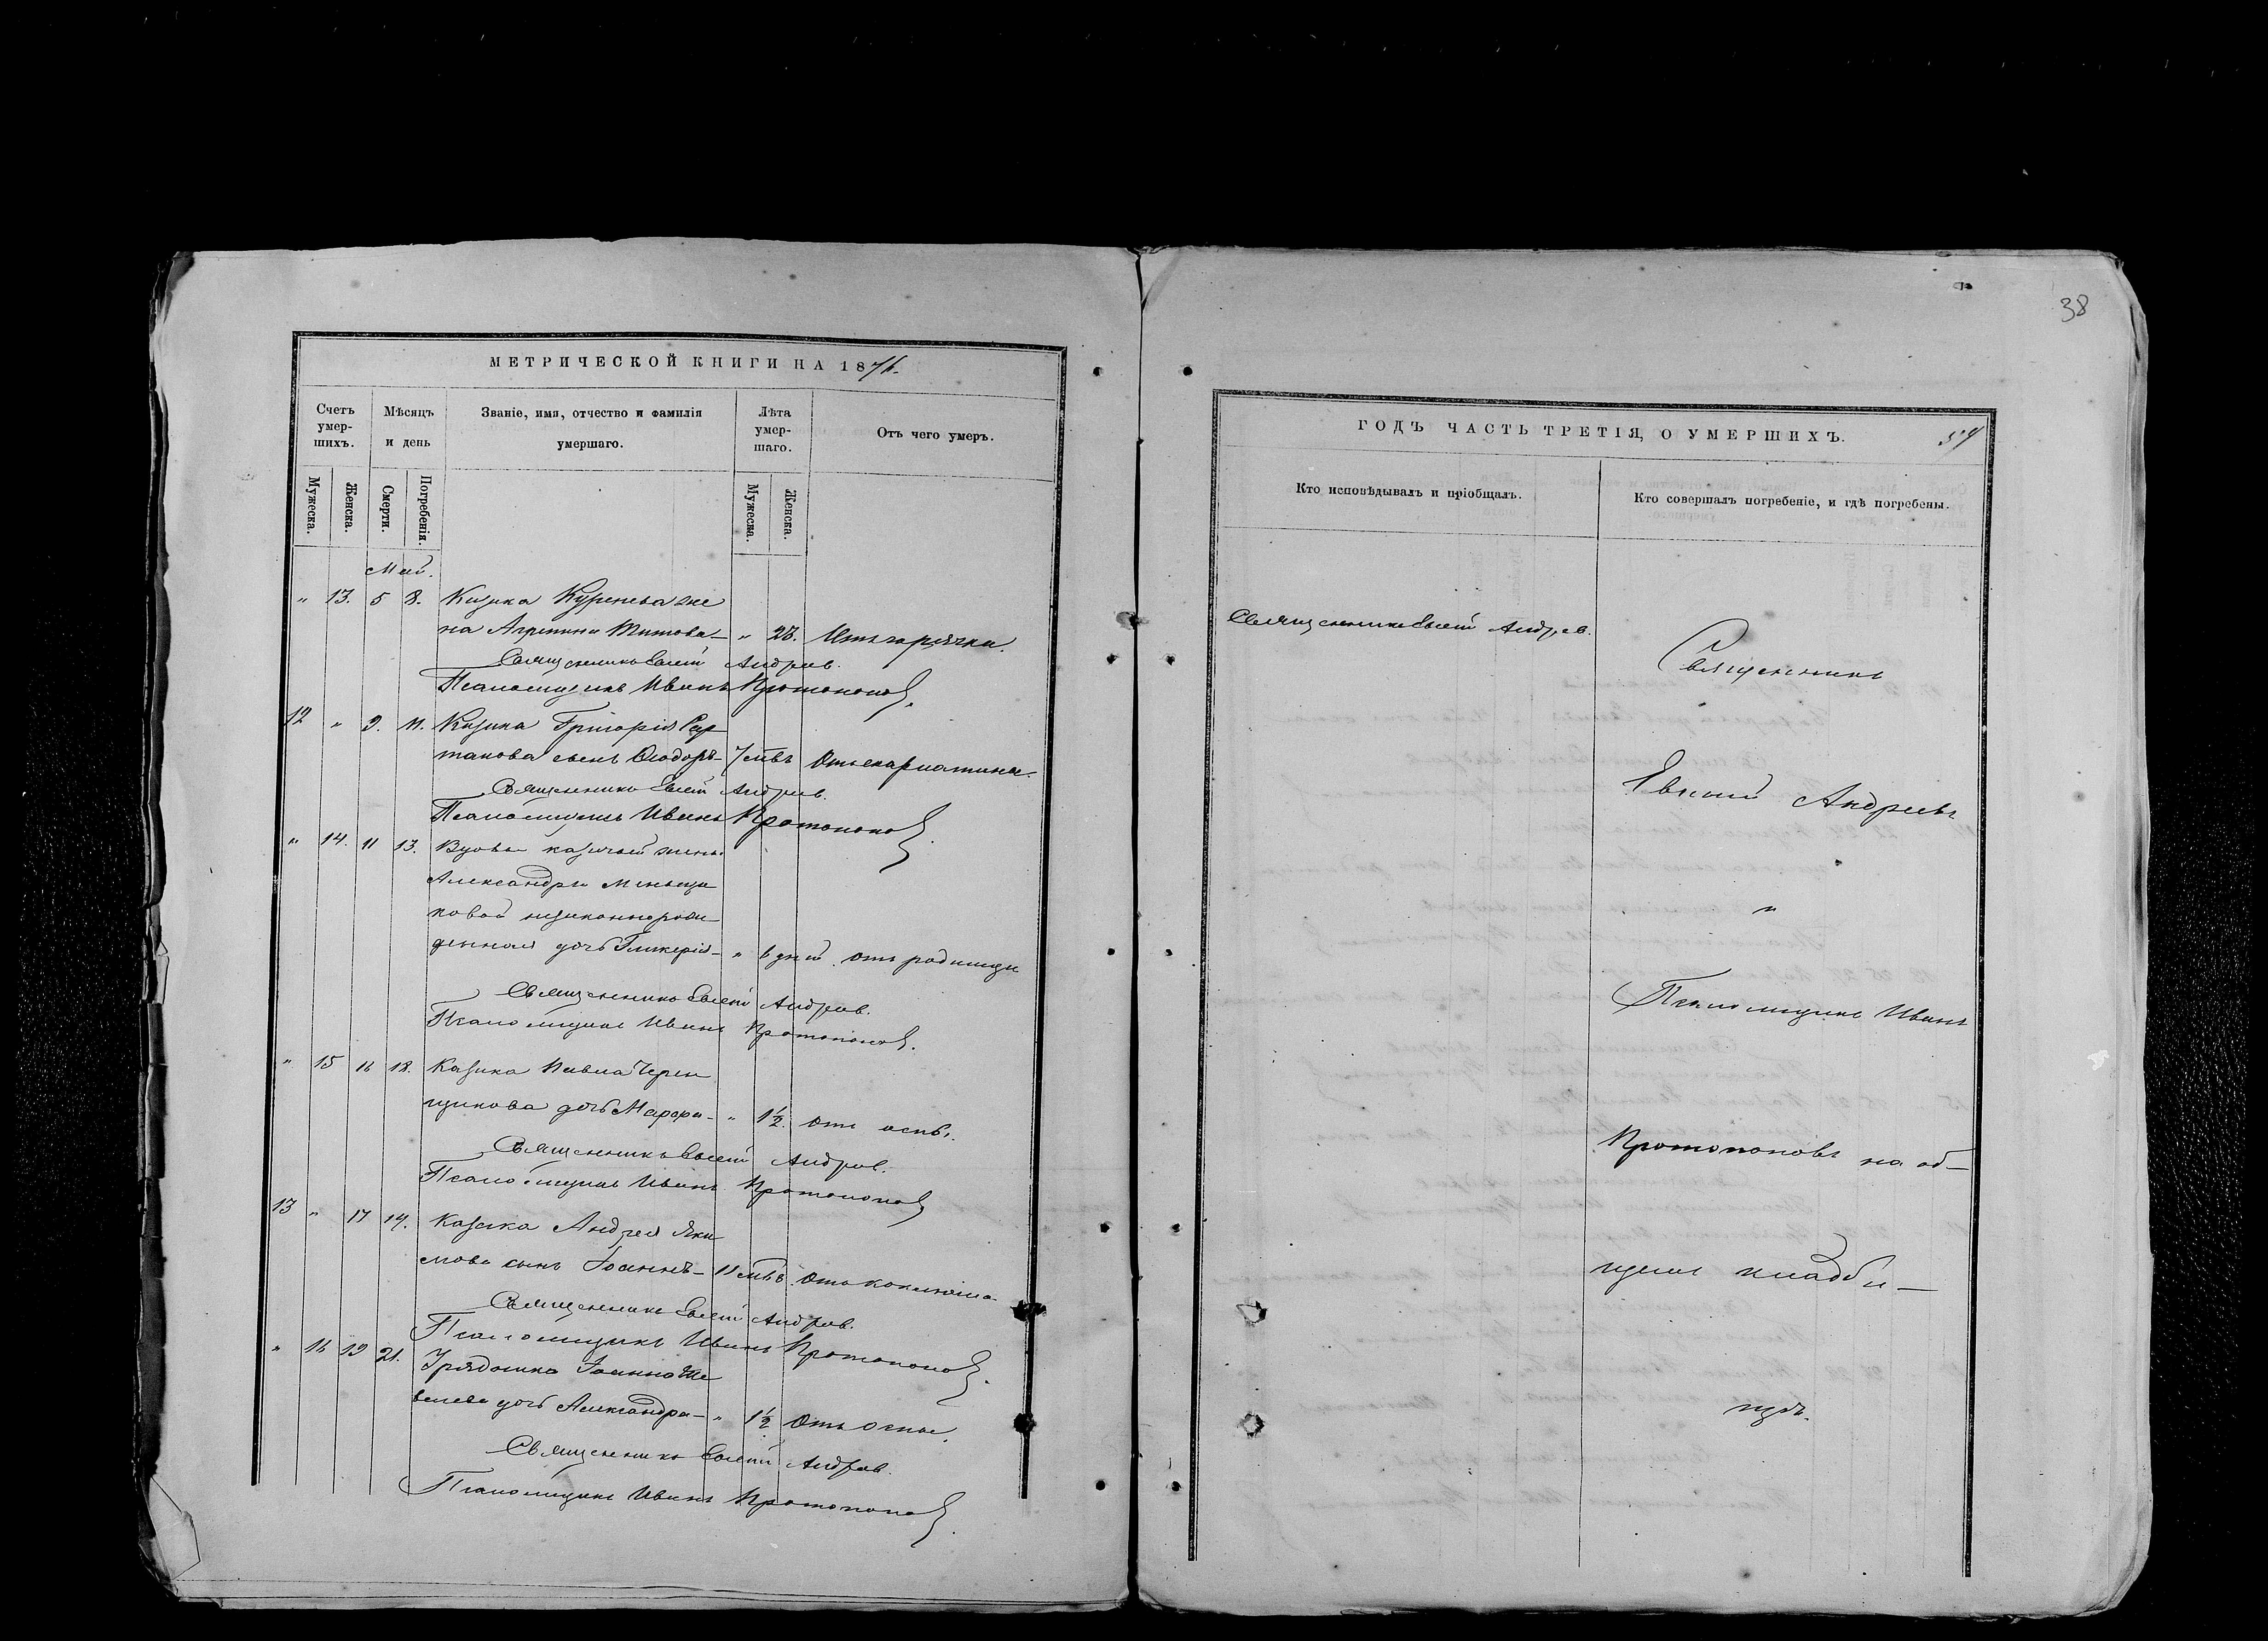 38
МЕТРИЧЕСКОЙ КНИГИ НА 1876.
Счетъ умер-шихъ.
Мѣсяцъ и день
Званіе, имя, отчество и фамилія умершаго.
Лѣта умер-шаго.
Отъ чего умеръ.
Мужеска.
Женска.
Смерти.
Погребенія.
Мужеска.
Женска.
Май.
" 13. 5 8. Казака Куренева же
на Агрипина Титова - " 28. Отъ горячки.
Священникъ Евсей Андреев.
Псаломщикъ Иванъ Протопопов.
12 " 9. 11. Казака Григорія
сынъ Ѳеодоръ - 7 лѣтъ Отъ скарлатины.
Священникъ Евсей Андреев.
Псаломщикъ Иванъ Протопопов.
" 14. 11 13. Вдовы казачьей жены
Александры Меньщи
ковой незаконнорож
денная дочь Гликерія - " 6 дней. отъ родимцу
Священникъ Евсей Андреев.
Псаломщикъ Иванъ Протопопов.
" 15 16 18. Казака Павла Черен
щикова дочь Марѳа - " 1½. отъ оспы.
Священникъ Евсей Андреев.
Псаломщикъ Иванъ Протопопов
13 " 17 19. Казака Андрея Яки
мова сынъ Іоаннъ - лѣтъ. отъ
Священникъ Евсей Андреев.
Псаломщикъ Иванъ Протопопов.
" 16 19 21. Урядника Іоанна Ше
велева дочь Александра - " 1½ Отъ оспы.
Священникъ Евсей Андреев.
Псаломщикъ Иванъ Протопопов.
ГОДЪ ЧАСТЬ ТРЕТІЯ, О УМЕРШИХЪ.
Кто исповѣдывалъ и пріобщалъ.
Кто совершалъ погребеніе, и гдѣ погребены.
Священникъ Евсей Андреев.
Священникъ
Евсей Андреевъ
"
Псаломщикъ Иванъ
Протопоповъ на об-
щем кладби-
щѣ.